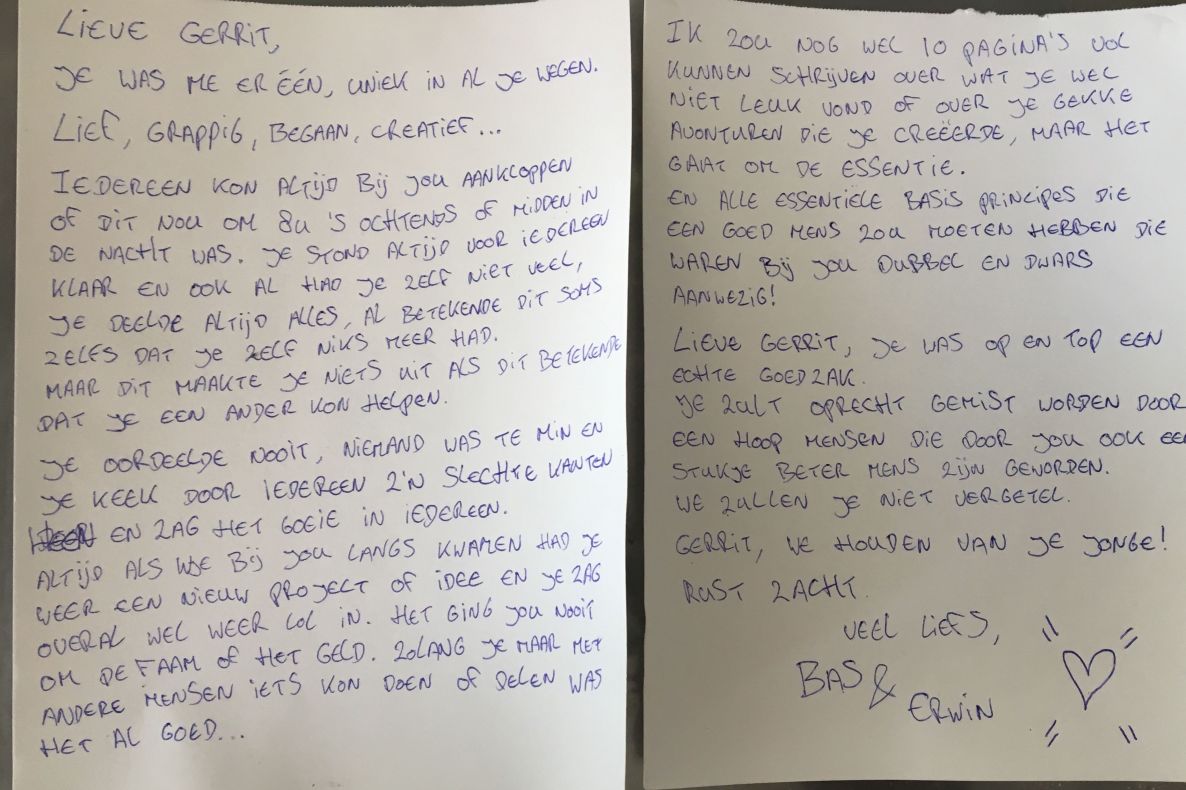 LIEVE GERRIT,
JE WAS ME ER ÉÉN, UNIEK IN AL JE WEGEN.
LIEF, GRAPPIG, BEGAAN, CREATIEF...
IEDEREEN KON ALTIJD BIJ JOU AANKLOPPEN
OF DIT NOU OM 8U 'S OCHTENDS OF MIDDEN IN
DE NACHT WAS. JE STOND ALTIJD VOOR IEDEREEN
KLAAR EN OOK AL HAD JE ZELF NIET VEEL,
JE DEELDE ALTIJD ALLES, AL BETEKENDE DIT SOMS
ZELFS DAT JE ZELF NIKS MEER HAD.
MAAR DIT MAAKTE JE NIETS UIT ALS DIT BETEKENDE
DAT JE EEN ANDER KON HELPEN.
JE OORDEELDE NOOIT, NIEMAND WAS TE MIN EN
JE KEEK DOOR IEDEREEN Z'N SLECHTE KANTEN
EN ZAG HET GOEIE IN IEDEREEN.
ALTIJD ALS WE BIJ JOU LANGS KWAMEN HAD JE
WEER EEN NIEUW PROJECT OF IDEE EN JE ZAG
OVERAL WEL WEER LOL IN. HET GING JOU NOOIT
OM DE FAAM OF HET GELD. ZOLANG JE MAAR MET
ANDERE MENSEN IETS KON DOEN OF DELEN WAS
HET AL GOED...
IK ZOU NOG WEL 10 PAGINA'S VOL
KUNNEN SCHRIJVEN OVER WAT JE WEL
NIET LEUK VOND OF OVER JE GEKKE
AVONTUREN DIE JE CREËERDE, MAAR HET
GAAT OM DE ESSENTIE.
EN ALLE ESSENTIËLE BASIS PRINCIPES DIE
EEN GOED MENS ZOU MOETEN HEBBEN DIE
WAREN BIJ JOU DUBBEL EN DWARS
AANWEZIG!
LIEVE GERRIT, JE WAS OP EN TOP EEN
ECHTE GOEDZAK.
JE ZULT OPRECHT GEMIST WORDEN DOOR
EEN HOOP MENSEN DIE DOOR JOU OOK EEN
STUKJE BETER MENS ZIJN GEWORDEN.
WE ZULLEN JE NIET VERGETEL.
GERRIT, WE HOUDEN VAN JE JONGE!
RUST ZACHT.
VEEL LIEFS,
BAS &
ERWIN